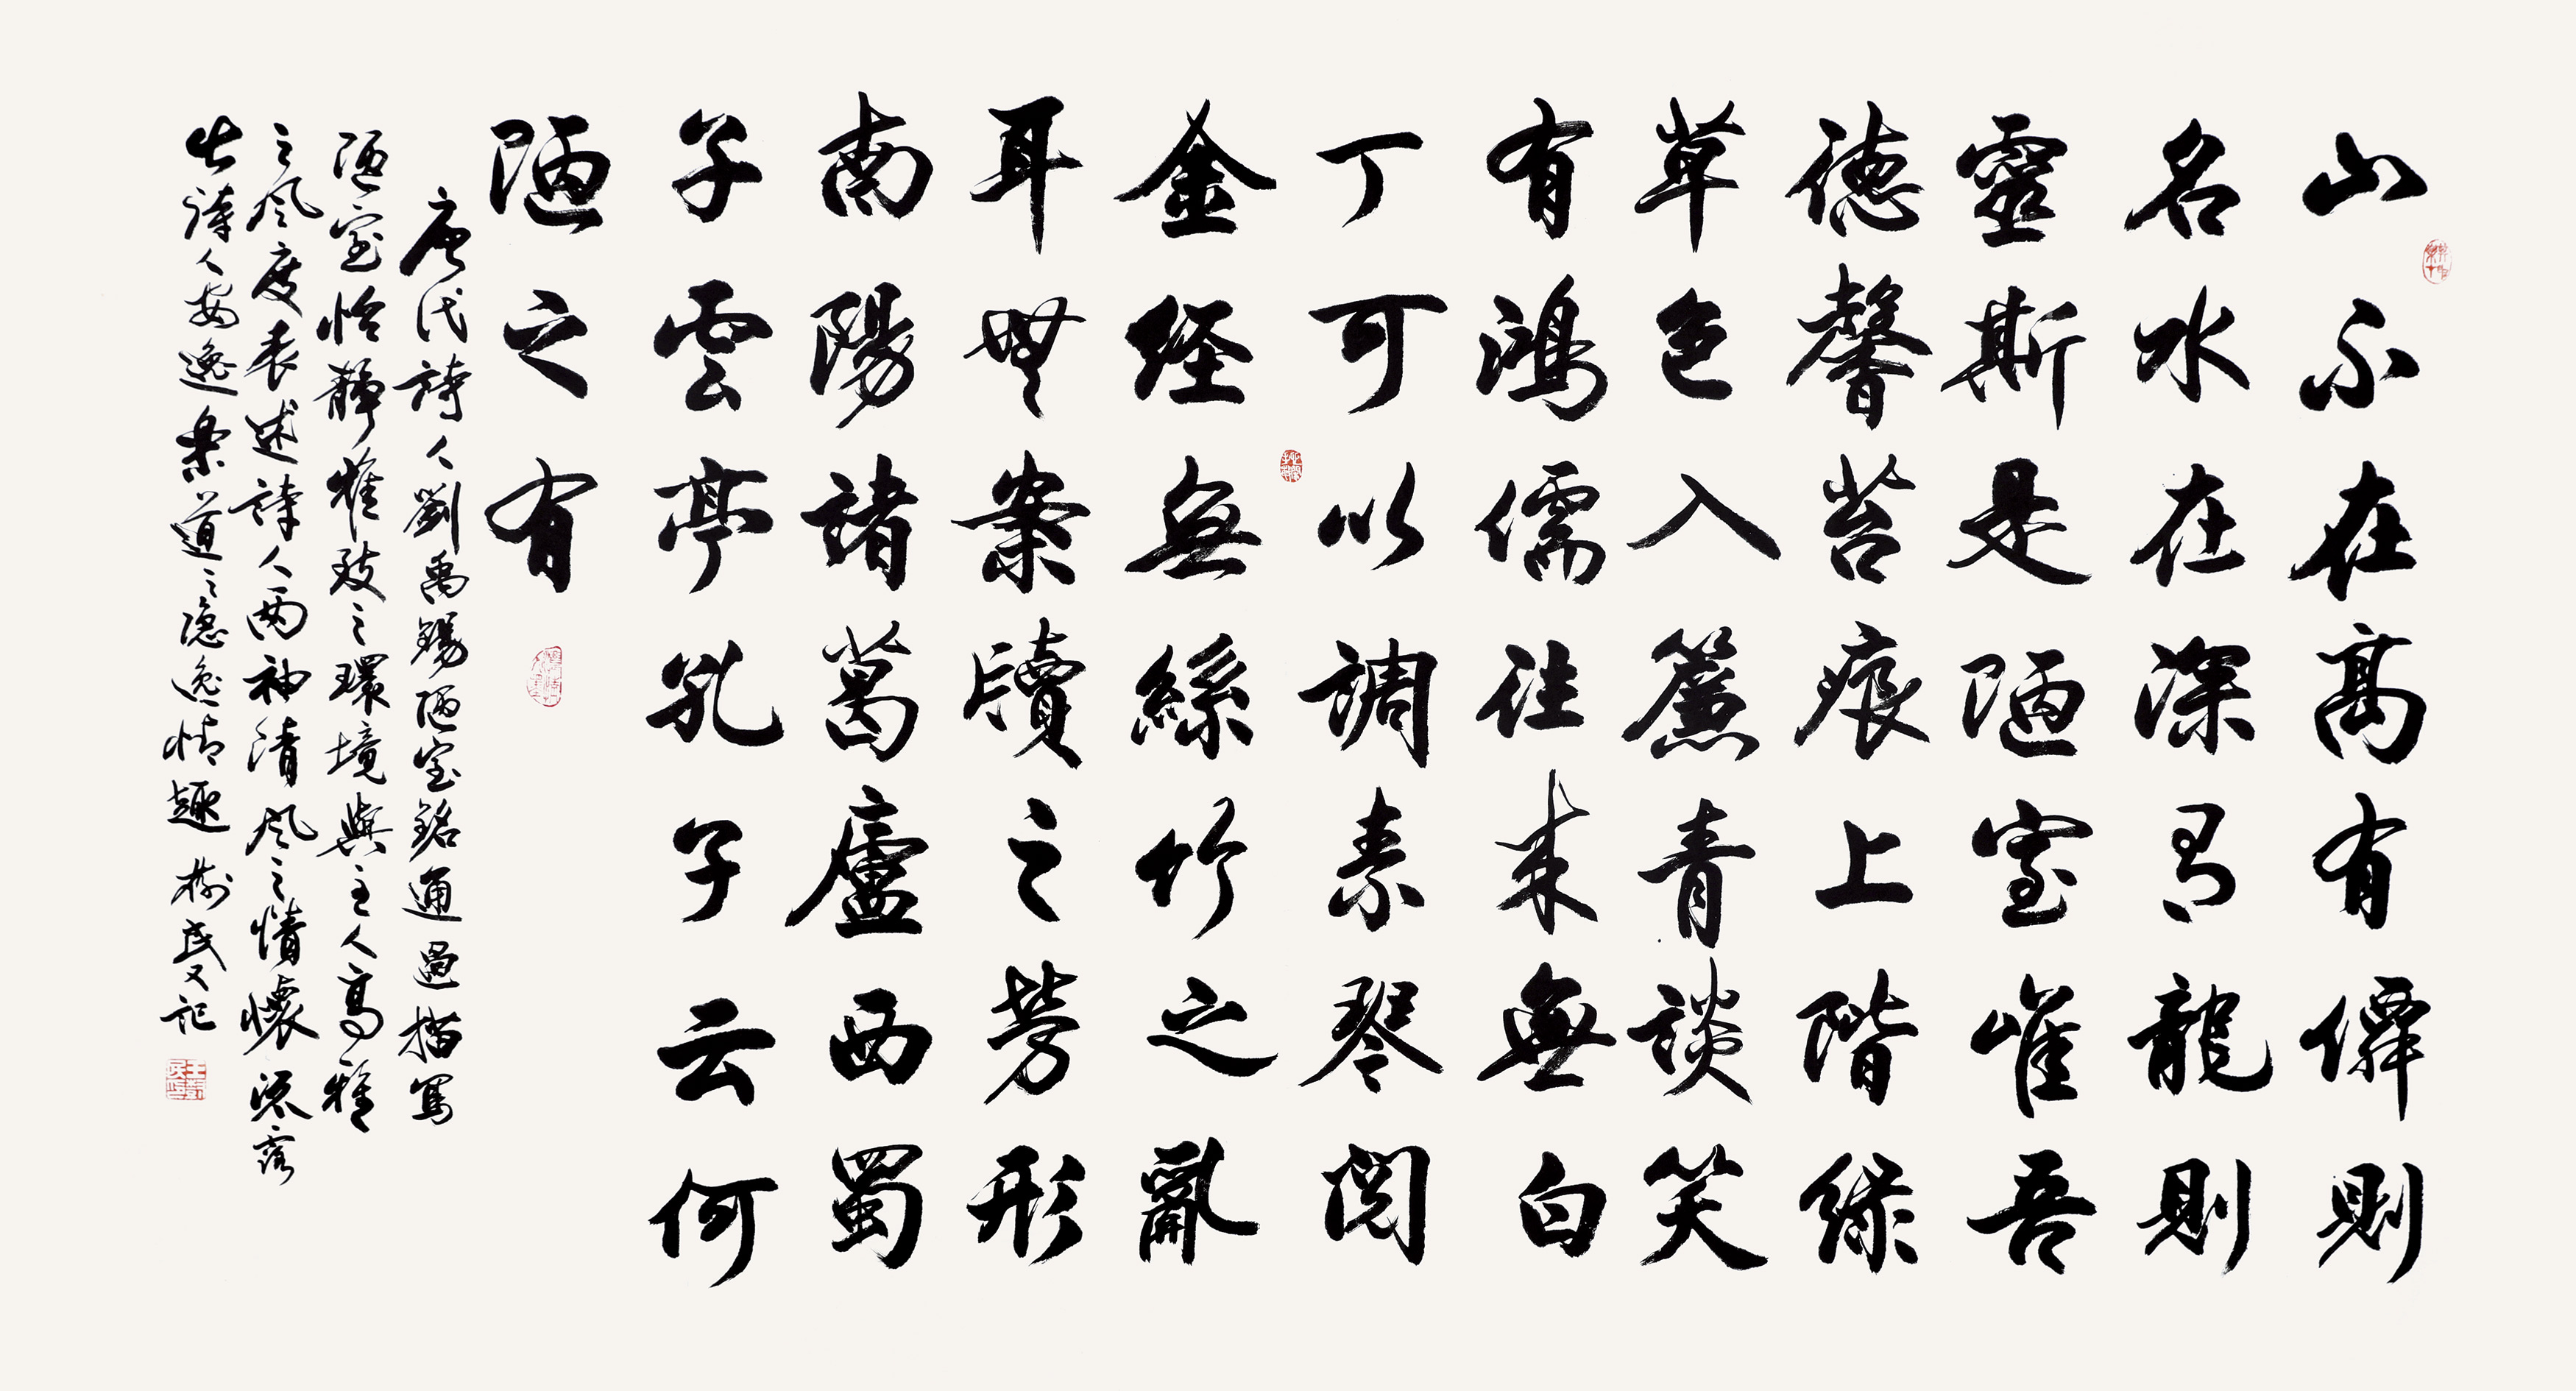 山不在高有僊則
名水在深有龍則
靈斯是陋室唯吾
德馨苔痕上階綠
草色入簾青談笑
有鴻儒往来無白
丁可以調素琴閱
金経無絲竹之亂
耳無案牘之勞形
南陽諸葛廬西蜀
子雲亭孔子云何
陋之有
唐代詩人劉禹錫陋室銘通過描寫
陋室恬靜雅致之環境與主人高雅
之風度表述詩人两袖清風之情懷流露
出詩人安逸樂道之隐逸情趣 樹民又記